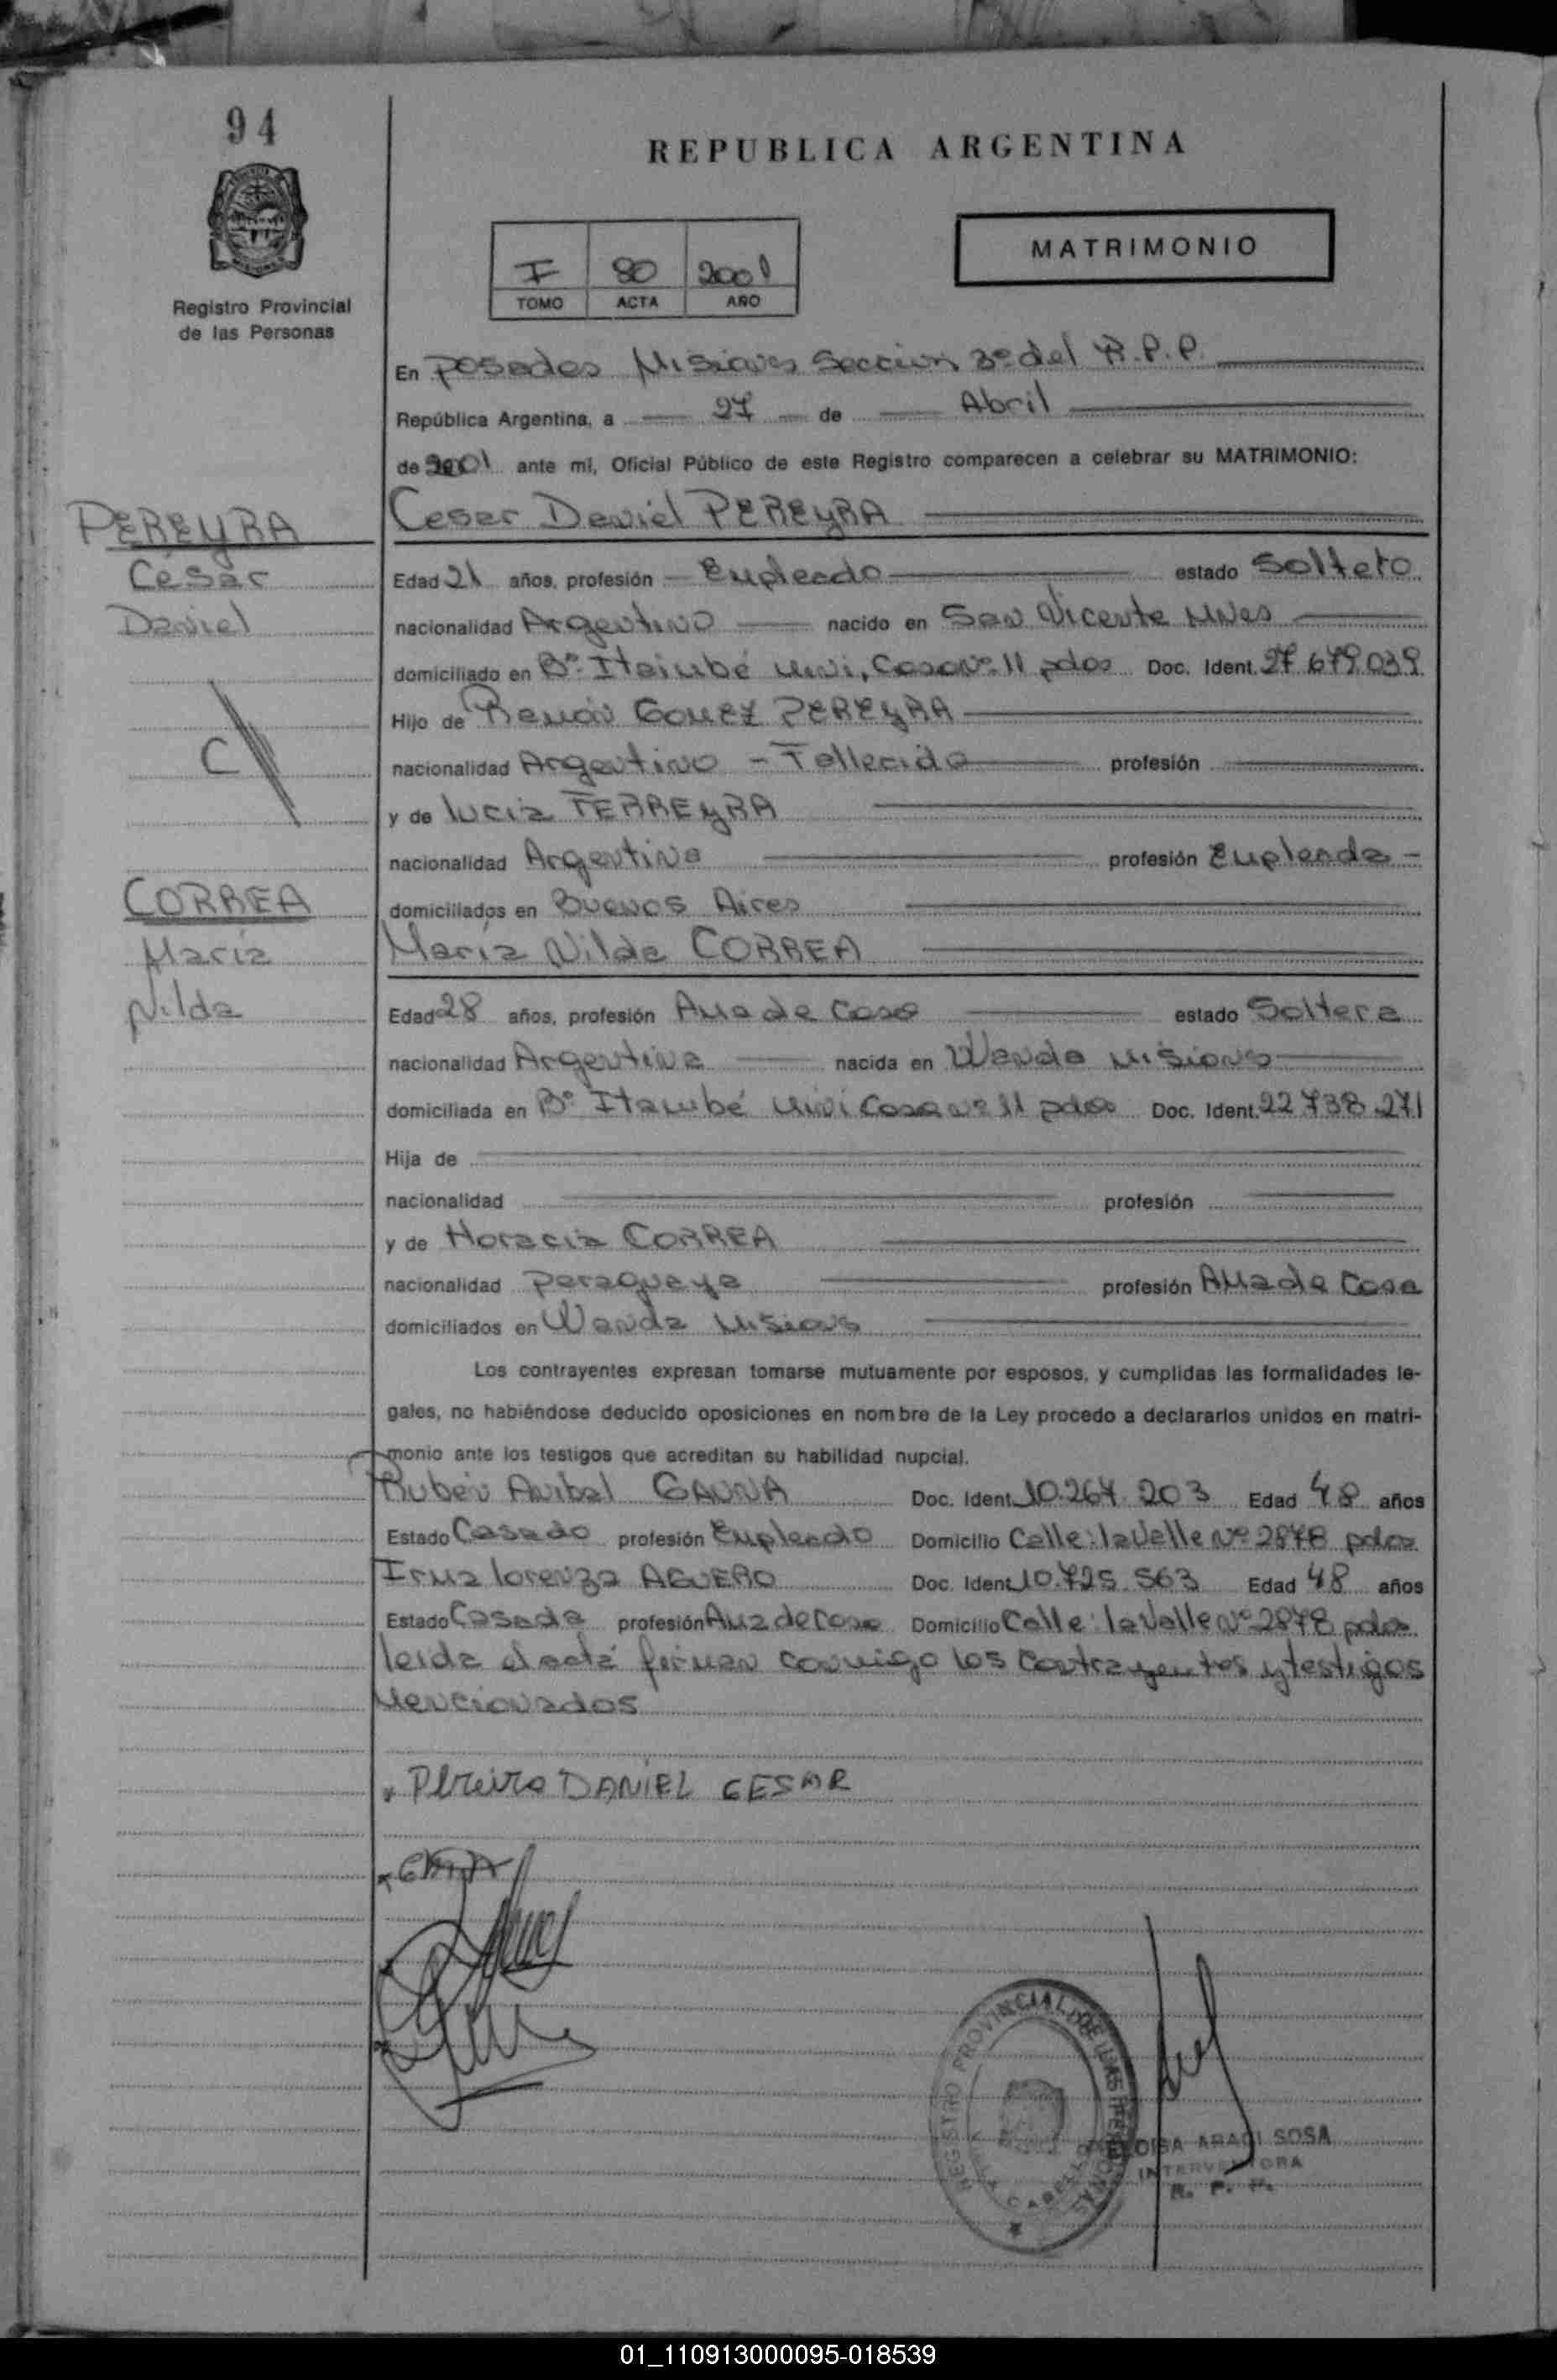 94
REPUBLICA ARGENTINA
MATRIMONIO
I 80 2001
TOMO ACTA AÑO
Registro Provincial
de las Personas
En Posadas Misiones Sección 3º del R.P.P.
República Argentina, a 27 de Abril
de 2001 ante mí, Oficial Público de este Registro comparecen a celebrar su MATRIMONIO:
PEREYRA
César
Daniel
C
César Daniel PEREYRA
Edad 21 años, profesión Empleado estado Soltero
nacionalidad Argentino nacido en San Vicente Mnes
domiciliado en Bº Itaimbé Mini, Casa Nº 11 pdas Doc. Ident. 27.679.039
Hijo de Ramón Gomez PEREYRA
nacionalidad Argentino - Fallecido profesión
y de Lucia FERREYRA
nacionalidad Argentina profesión Empleada -
domiciliados en Buenos Aires
CORREA
María
Nilda
María Nilda CORREA
Edad 28 años, profesión Ama de Casa estado Soltera
nacionalidad Argentina nacida en Wanda Misiones
domiciliada en Bº Itaimbé Mini Casa Nº 11 pdas Doc. Ident. 22.738.271
Hija de
nacionalidad profesión
y de Horacia CORREA
nacionalidad paraguaya profesión Ama de Casa
domiciliados en Wanda Misiones
Los contrayentes expresan tomarse mutuamente por esposos, y cumplidas las formalidades le-
gales, no habiéndose deducido oposiciones en nombre de la Ley procedo a declararlos unidos en matri-
monio ante los testigos que acreditan su habilidad nupcial.
Rubén Anibal GAUNA Doc. Ident. 10.264.203 Edad 48 años
Estado Casado profesión Empleado Domicilio Calle: lavalle Nº 2878 pdas
Irma lorenza AGUERO Doc. Ident. 10.725.563 Edad 48 años
Estado Casada profesión Ama de Casa Domicilio Calle: lavalle Nº 2878 pdas
leída el acta firman conmigo los Contrayentes y testigos
Mencionados
Pereira DANIEL CESAR
REGISTRO PROVINCIAL DE LAS PERSONAS
ARACI SOSA
INTERVENTORA
R. P. P.
01_110913000095-018539